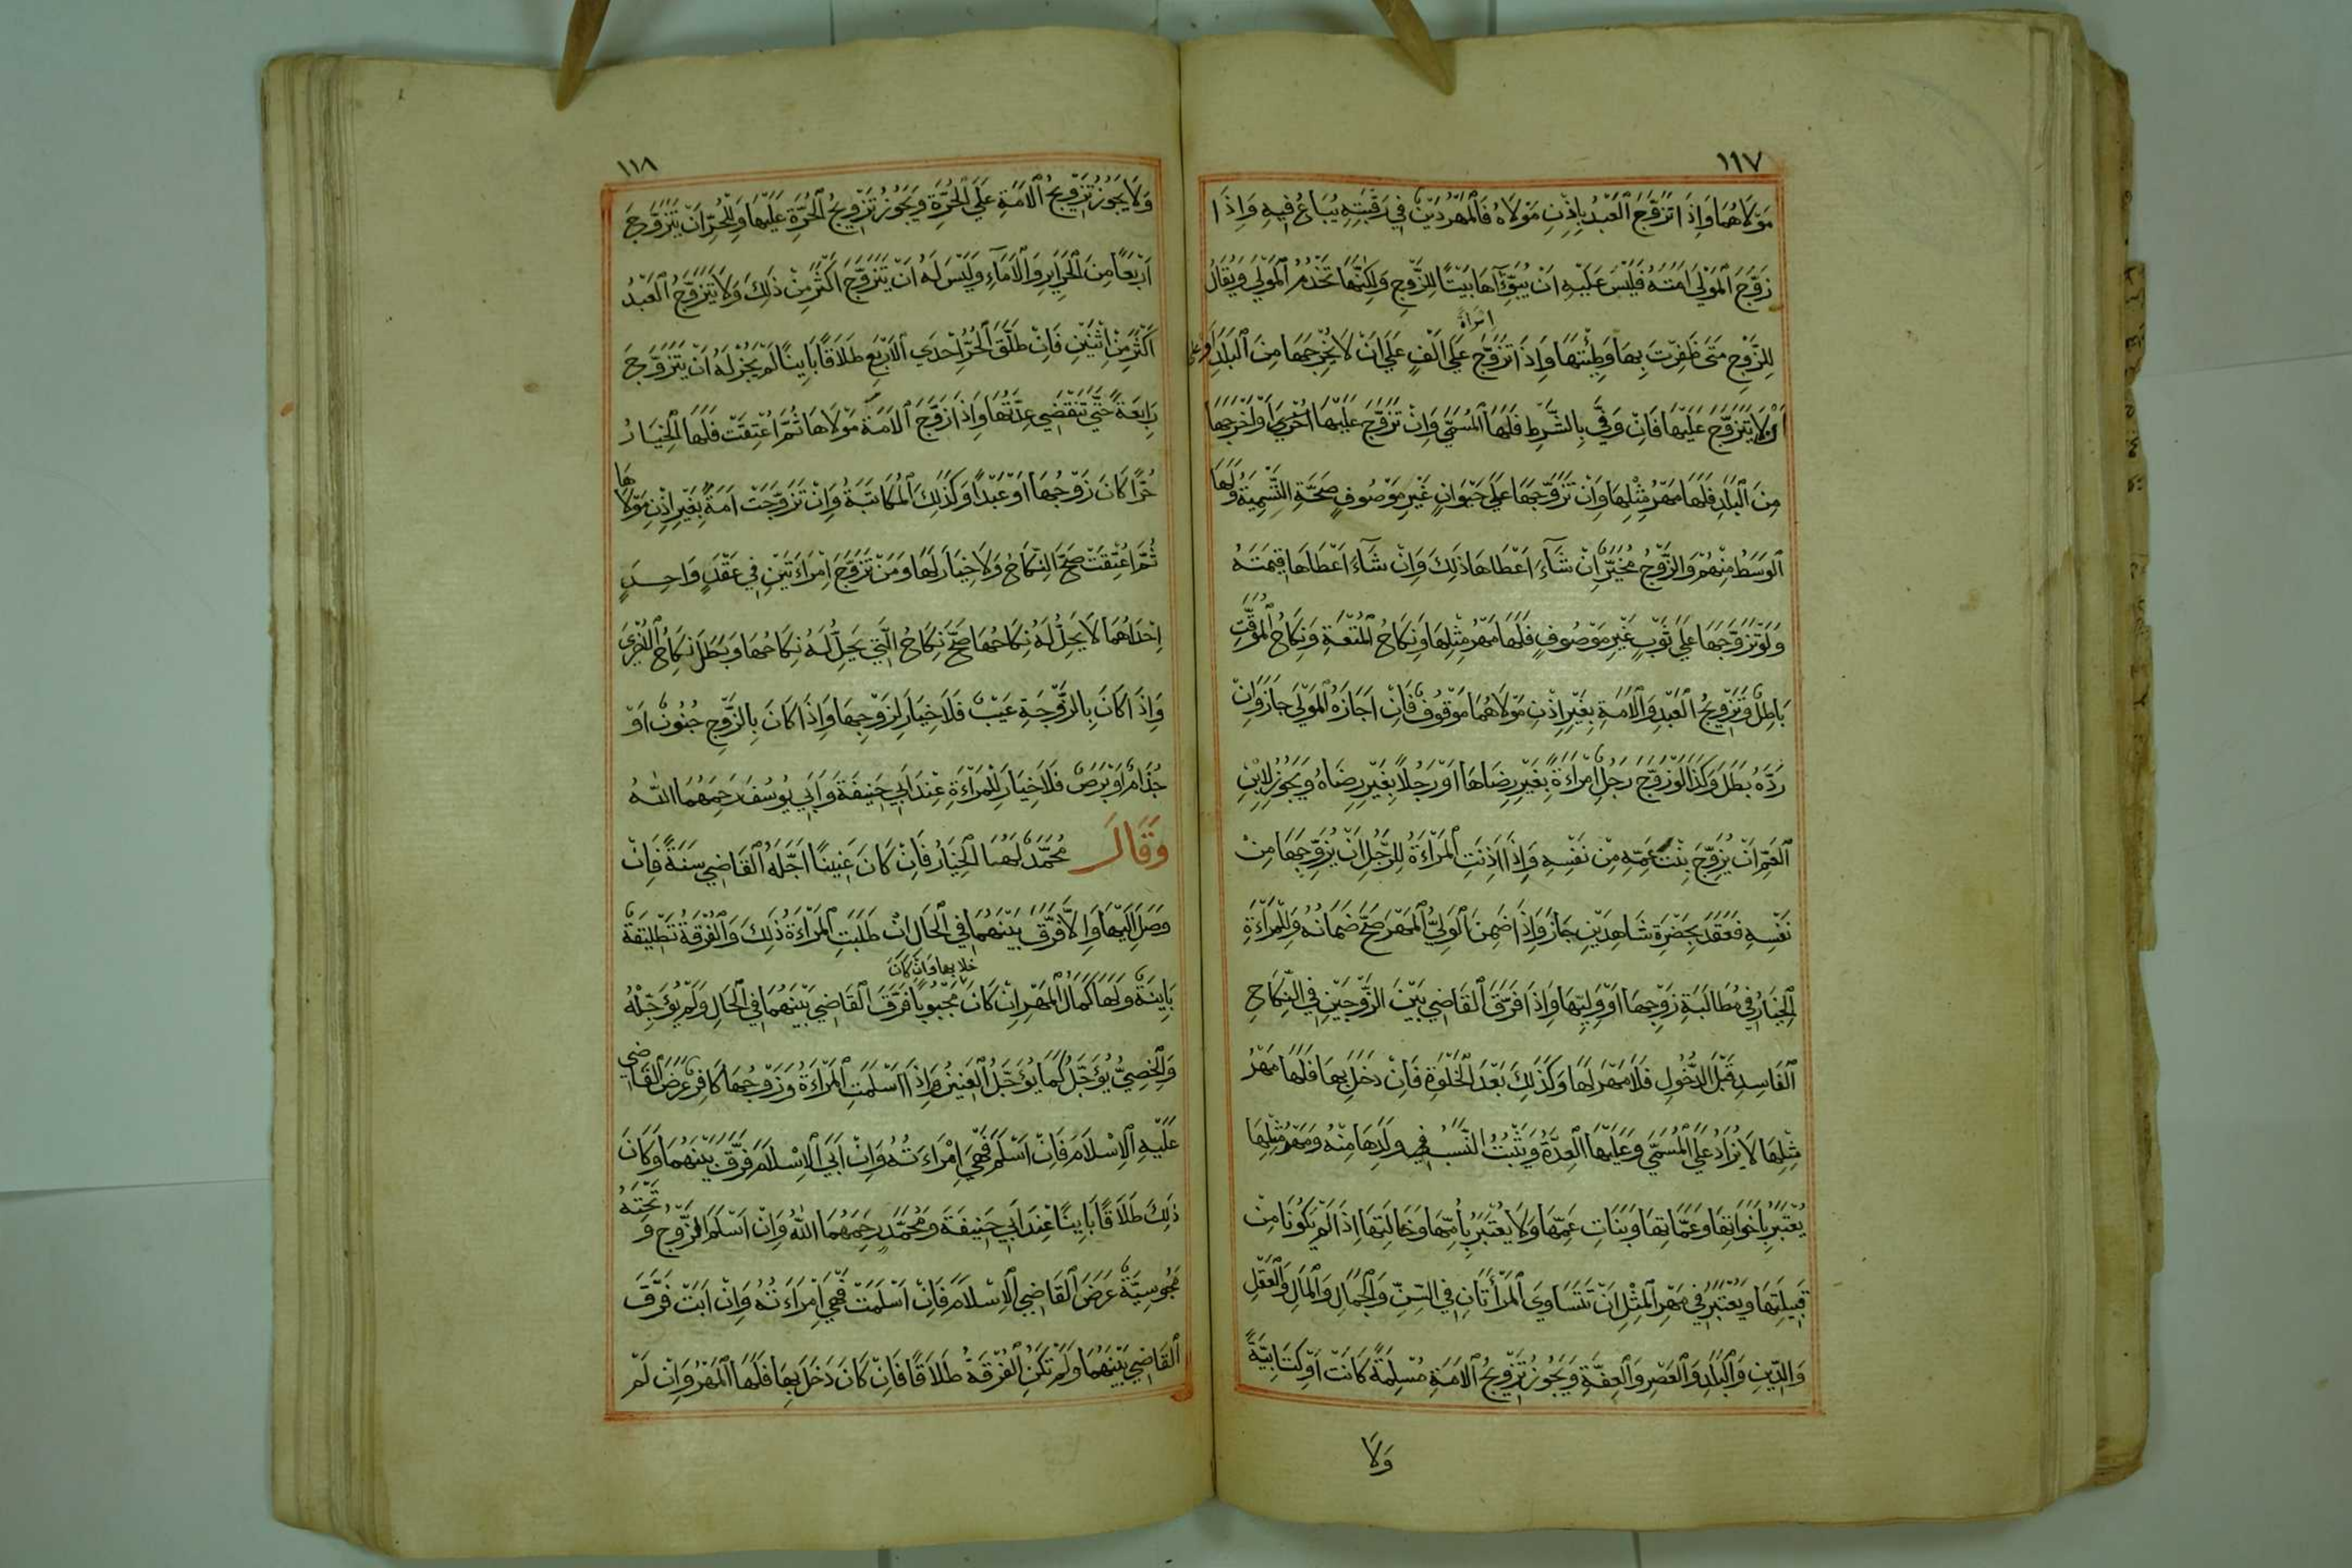 ١١٧
مَوْلَاهُمَا وَاِذَا تَزَوَّجَ الْعَبْدُ بِاِذْنِ مَوْلَاهُ فَالْمَهْرُ دَيْنٌ فِي رَقَبَتِهِ يُبَاعُ فِيهِ وَاِذَا
زَوَّجَ الْمَوْلَى اَمَتَهُ فَلَيْسَ عَلَيْهِ اَنْ يُبَوِّئَهَا بَيْتًا لِلزَّوْجِ وَلَكِنَّهَا تَخْدُمُ الْمَوْلَى وَيُقَالُ
لِلزَّوْجِ مَتَى ظَفِرْتَ بِهَا وَطِئْتَهَا وَاِذَا تَزَوَّجَ امرأة عَلَى اَلْفٍ عَلَى اَنْ لَا يُخْرِجَهَا مِنَ الْبَلَدِ اَوْ عَلَى
اَنْ لَا يَتَزَوَّجَ عَلَيْهَا فَاِنْ وَفَّى بِالشَّرْطِ فَلَهَا الْمُسَمَّى وَاِنْ تَزَوَّجَ عَلَيْهَا اُخْرَى اَوْ اَخْرَجَهَا
مِنَ الْبَلَدِ فَلَهَا مَهْرُ مِثْلِهَا وَاِنْ تَزَوَّجَهَا عَلَى حَيَوَانٍ غَيْرِ مَوْصُوفٍ صَحَّةِ التَّسْمِيَةُ وَلَهَا
الْوَسَطُ مِنْهُمْ وَالزَّوْجُ مُخَيَّرٌ اِنْ شَآءَ اَعْطَاهَا ذَلِكَ وَاِنْ شَآءَ اَعْطَاهَا قِيمَتَهُ
وَلَوْ تَزَوَّجَهَا عَلَى ثَوْبٍ غَيْرِ مَوْصُوفٍ فَلَهَا مَهْرُ مِثْلِهَا وَنِكَاحُ الْمُتْعَةِ وَنِكَاحُ الْمُوَقَّتِ
بَاطِلٌ وَتَزْوِيجُ الْعَبْدِ وَالْاَمَةِ بِغَيْرِ اِذْنِ مَوْلَاهُمَا مَوْقُوفٌ فَاِنْ اَجَازَهُ الْمَوْلَى جَازَ وَاِنْ
رَدَّهُ بَطَلَ وَكَذَا لَوْ زَوَّجَ رَجُلٌ اِمْرَاَةً بِغَيْرِ رِضَاهَا اَوْ رَجُلًا بِغَيْرِ رِضَاهُ وَيَجُوزُ لِابْنِ
الْعَمِّ اَنْ يُزَوِّجَ بِنْتَ عَمِّهِ مِنْ نَفْسِهِ وَاِذَا اَذِنَتِ الْمَرْاَةُ لِلرَّجُلِ اَنْ يُزَوِّجَهَا مِنْ
نَفْسِهِ فَعَقَدَ بِحَضْرَةِ شَاهِدَيْنِ جَازَ وَاِذَا ضَمِنَ الْوَلِيُّ الْمَهْرَ صَحَّ ضَمَانُهُ وَلِلْمَرْاَةِ
الْخِيَارُ فِي مُطَالَبَةِ زَوْجِهَا اَوْ وَلِيِّهَا وَاِذَا فَرَّقَ الْقَاضِي بَيْنَ الزَّوْجَيْنِ فِي النِّكَاحِ
الْفَاسِدِ قَبْلَ الدُّخُولِ فَلَا مَهْرَ لَهَا وَكَذَلِكَ بَعْدَ الْخَلْوَةِ فَاِنْ دَخَلَ بِهَا فَلَهَا مَهْرُ
مِثْلِهَا لَا يُزَادُ عَلَى الْمُسَمَّى وَعَلَيْهَا الْعِدَّةُ وَيَثْبُتُ النَّسَبُ فِي وَلَدِهَا مِنْهُ وَمَهْرُ مِثْلِهَا
يُعْتَبَرُ بِاَخَوَاتِهَا وَعَمَّاتِهَا وَبَنَاتِ عَمِّهَا وَلَا يُعْتَبَرُ بِاُمِّهَا وَخَالَتِهَا اِذَا لَمْ يَكُونَا مِنْ
قَبِيلَتِهَا وَيُعْتَبَرُ فِي مَهْرِ الْمِثْلِ اَنْ تَتَسَاوَى الْمَرْاَتَانِ فِي السِّنِّ وَالْجَمَالِ وَالْمَالِ وَالْعَقْلِ
وَالدِّينِ وَالْبَلَدِ وَالْعَصْرِ وَالْعِفَّةِ وَيَجُوزُ تَزْوِيجُ الْاَمَةِ مُسْلِمَةً كَانَتْ اَوْ كِتَابِيَّةً
وَلَا
١١٨
وَلَا يَجُوزُ تَزْوِيجُ الْاَمَةِ عَلَى الْحُرَّةِ وَيَجُوزُ تَزْوِيجُ الْحُرَّةِ عَلَيْهَا وَلِلْحُرِّ اَنْ يَتَزَوَّجَ
اَرْبَعًا مِنَ الْحَرَايِرِ وَالْاَمَآءِ وَلَيْسَ لَهُ اَنْ يَتَزَوَّجَ اَكْثَرَ مِنْ ذَلِكَ وَلَا يَتَزَوَّجُ الْعَبْدُ
اَكْثَرَ مِنْ اِثْنَيْنِ فَاِنْ طَلَّقَ الْحُرُّ اِحْدَى الْاَرْبَعِ طَلَاقًا بَايِنًا لَمْ يَجُزْ لَهُ اَنْ يَتَزَوَّجَ
رَابِعَةً حَتَّى تَنْقَضِيَ عِدَّتُهَا وَاِذَا زَوَّجَ الْاَمَةَ مَوْلَاهَا ثُمَّ اُعْتِقَتْ فَلَهَا الْخِيَارُ
حُرًّا كَانَ زَوْجُهَا اَوْ عَبْدًا وَكَذَلِكَ الْمُكَاتَبَةُ وَاِنْ تَزَوَّجَتْ اَمَةٌ بِغَيْرِ اِذْنِ مَوْلَاهَا
ثُمَّ اُعْتِقَتْ صَحَّ النِّكَاحُ وَلَا خِيَارَ لَهَا وَمَنْ تَزَوَّجَ اِمْرَاَتَيْنِ فِي عَقْدٍ وَاحِدٍ
اِحْدَاهُمَا لَا يَحِلُّ لَهُ نِكَاحُهَا صَحَّ نِكَاحُ الَّتِي يَحِلُّ لَهُ نِكَاحُهَا وَبَطَلَ نِكَاحُ الْاُخْرَى
وَاِذَا كَانَ بِالزَّوْجَةِ عَيْبٌ فَلَا خِيَارَ لِزَوْجِهَا وَاِذَا كَانَ بِالزَّوْجِ جُنُونٌ اَوْ
جُذَامٌ اَوْ بَرَصٌ فَلَا خِيَارَ لِلْمَرْاَةِ عِنْدَ اَبِي حَنِيفَةَ وَاَبِي يُوسُفَ رَحِمَهُمَا اللّٰهُ
وَقَالَ مُحَمَّدٌ لَهَا الْخِيَارُ فَاِنْ كَانَ عَنِينًا اَجَّلَهُ الْقَاضِي سَنَةً فَاِنْ
وَصَلَ اِلَيْهَا وَاِلَّا فَرَّقَ بَيْنَهُمَا فِي الْحَالِ اِنْ طَلَبَتِ الْمَرْاَةُ ذَلِكَ وَالْفُرْقَةُ تَطْلِيقَةٌ
بَايِنَةٌ وَلَهَا كَمَالُ الْمَهْرِ اِنْ كَانَ خلا بها وان كان مَجْبُوبًا فَرَّقَ الْقَاضِي بَيْنَهُمَا فِي الْحَالِ وَلَمْ يُؤَجِّلْهُ
وَالْخَصِيُّ يُؤَجَّلُ كَمَا يُؤَجَّلُ الْعَنِينُ وَاِذَا اَسْلَمَتِ الْمَرْاَةُ وَزَوْجُهَا كَافِرٌ عَرَضَ الْقَاضِي
عَلَيْهِ الْاِسْلَامَ فَاِنْ اَسْلَمَ فَهِيَ اِمْرَاَتُهُ وَاِنْ اَبَى الْاِسْلَامَ فَرَّقَ بَيْنَهُمَا وَكَانَ
ذَلِكَ طَلَاقًا بَايِنًا عِنْدَ اَبِي حَنِيفَةَ وَمُحَمَّدٍ رَحِمَهُمَا اللّٰهُ وَاِنْ اَسْلَمَ الزَّوْجُ وَتَحْتَهُ
مَجُوسِيَّةٌ عَرَضَ الْقَاضِي الْاِسْلَامَ فَاِنْ اَسْلَمَتْ فَهِيَ اِمْرَاَتُهُ وَاِنْ اَبَتْ فَرَّقَ
الْقَاضِي بَيْنَهُمَا وَلَمْ تَكُنِ الْفُرْقَةُ طَلَاقًا فَاِنْ كَانَ دَخَلَ بِهَا فَلَهَا الْمَهْرُ وَاِنْ لَمْ